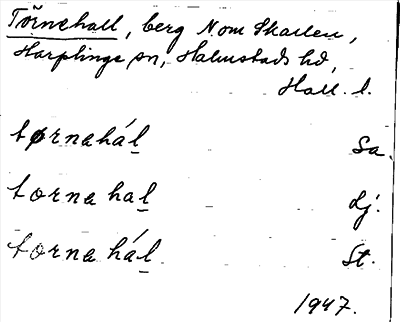 Törnehall, berg N om Skallen,
Harplinge sn, Halmstads hd,
Hall. l.
tørnahál̲ Sa.
tornahal̲ Lj.
tornahál̲ St.
1947.